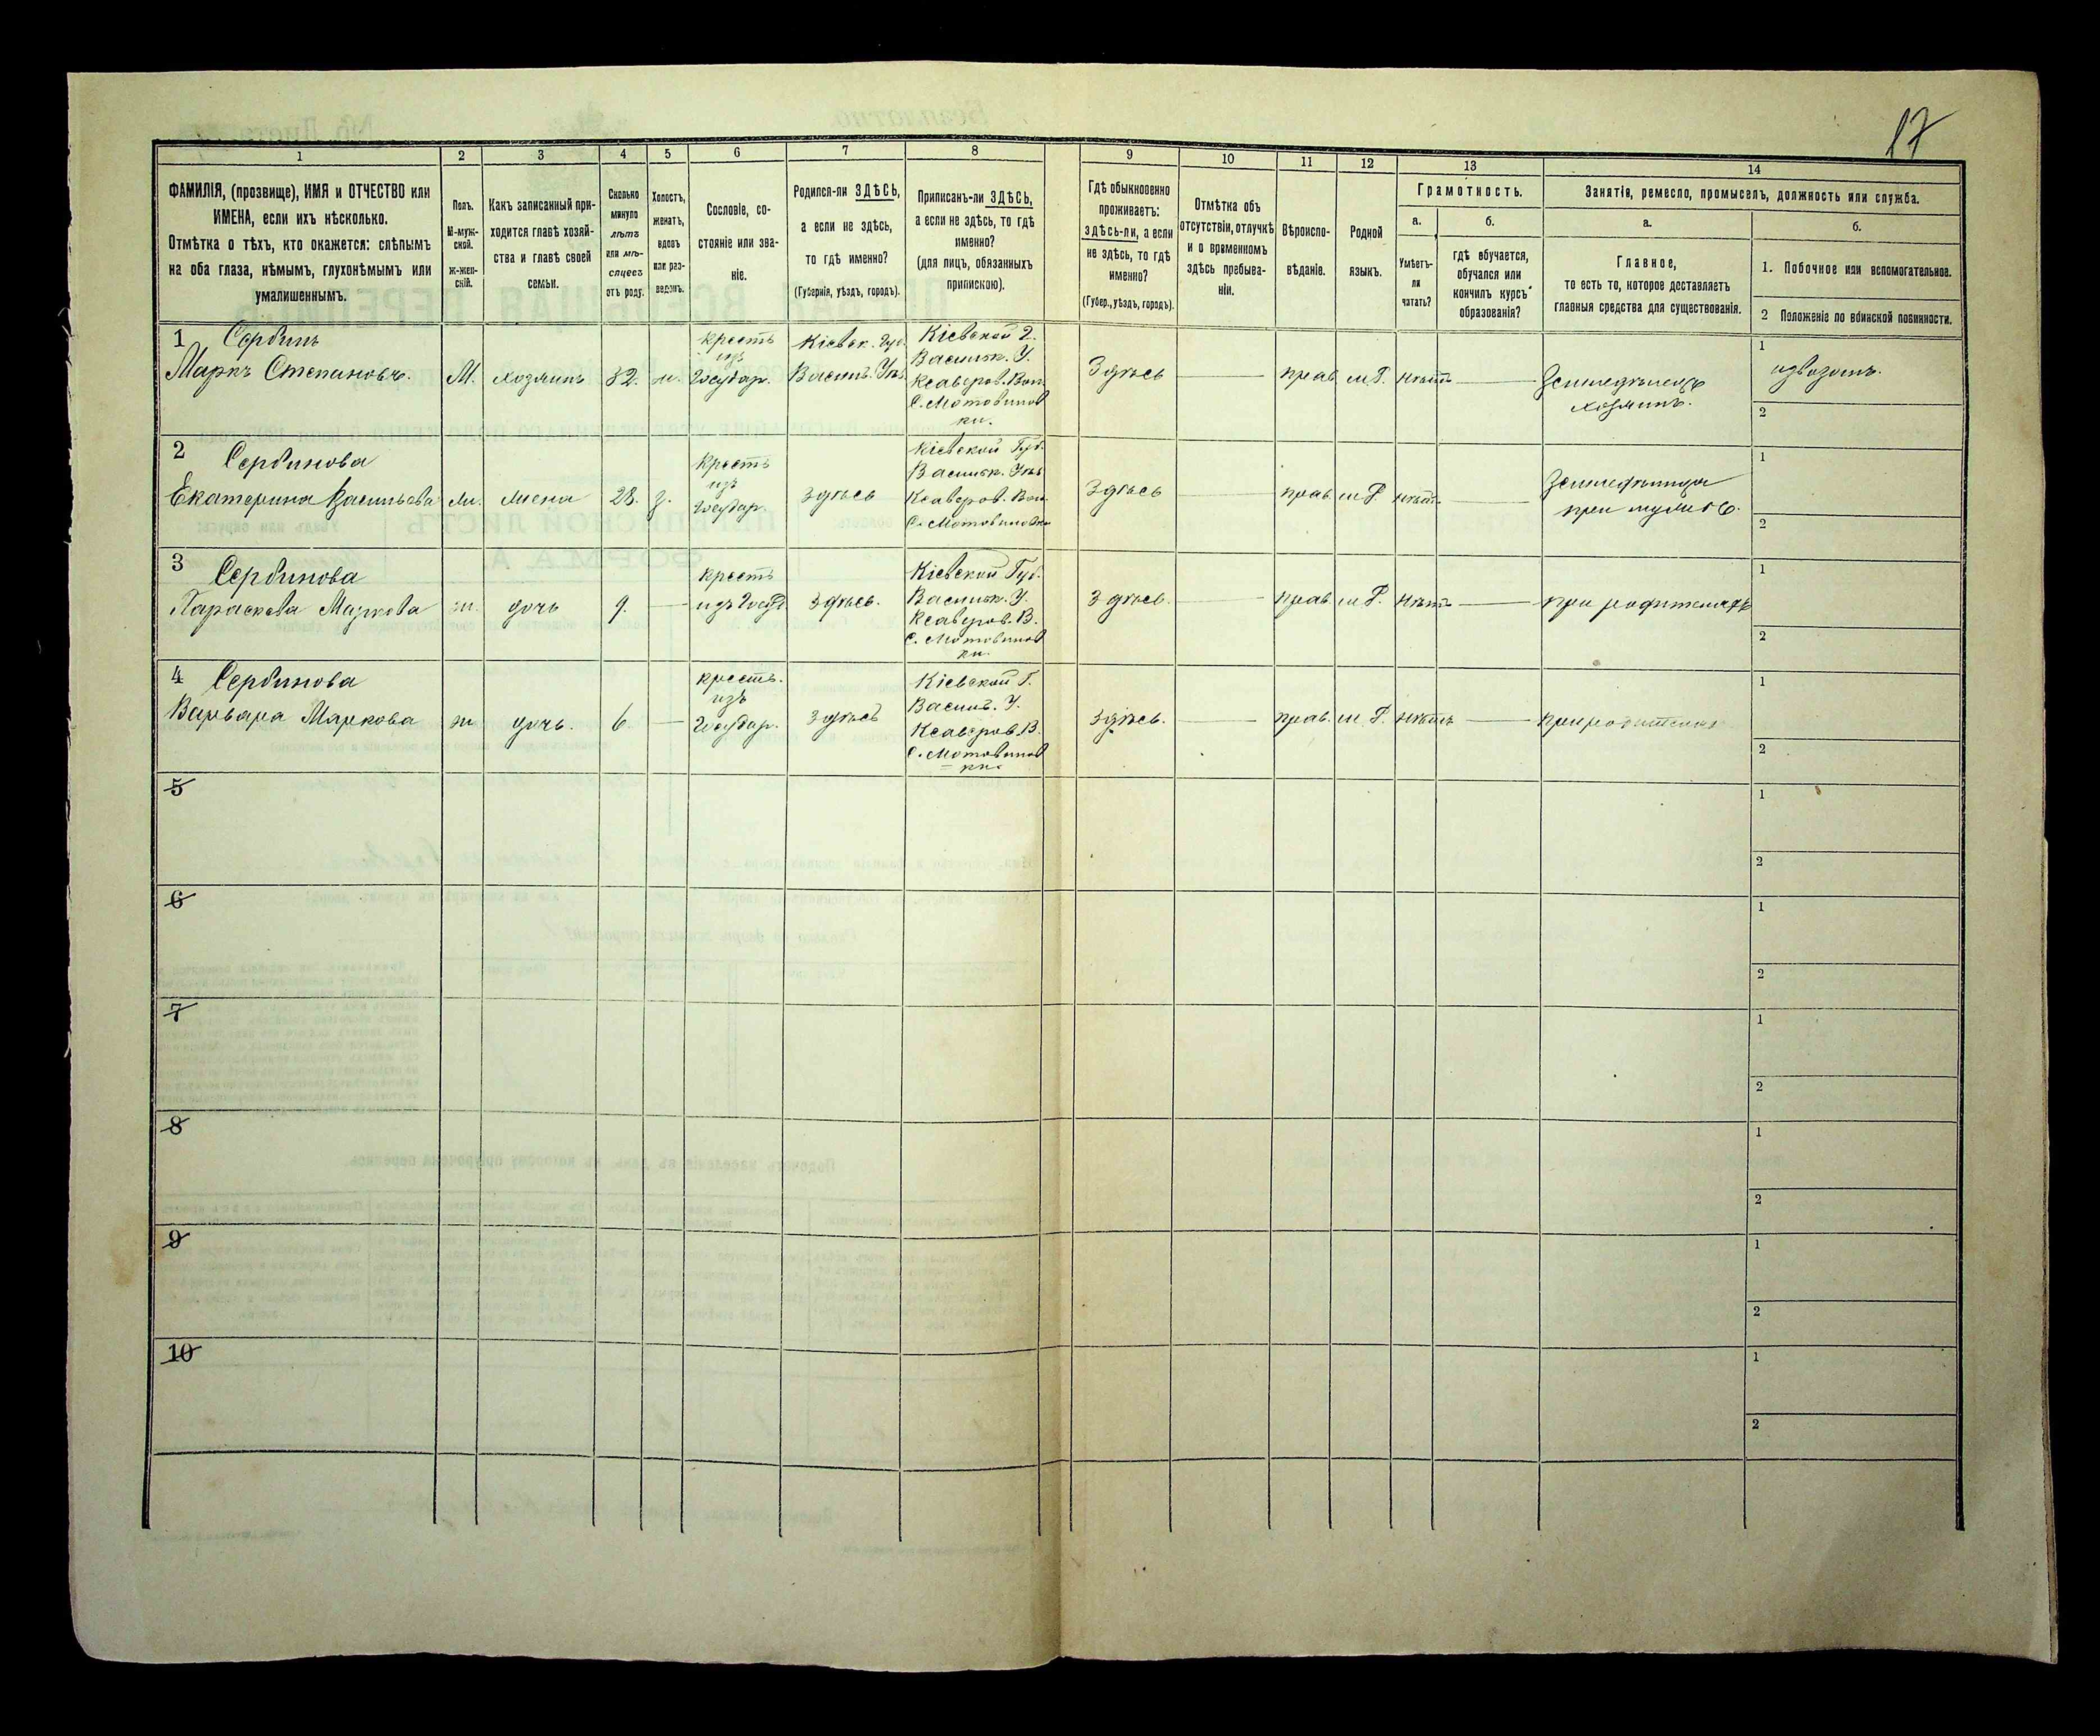 17
1 2 3 4 5 6 7 8 9 10 11 12 13 14
ФАМИЛІЯ, (прозвище), ИМЯ и ОТЧЕСТВО или
ИМЕНА, если ихъ нѣсколько.
Отмѣтка о тѣхъ, кто окажется: слѣпымъ
на оба глаза, нѣмымъ, глухонѣмымъ или
умалишеннымъ.
Полъ.
М-муж-
ской.
ж-жен-
скій.
Какъ записанный при-
ходится главѣ хозяй-
ства и главѣ своей
семьи.
Сколько
минуло
лѣтъ
или мѣ-
сяцевъ
отъ роду.
Холостъ,
женатъ,
вдовъ
или раз-
веденъ.
Сословіе, со-
стояніе или зва-
ніе.
Родился-ли ЗДѢСЬ,
а если не здѣсь,
то гдѣ именно?
(Губернія, уѣздъ, городъ).
Приписанъ-ли ЗДѢСЬ,
а если не здѣсь, то гдѣ
именно?
(для лицъ, обязанныхъ
припискою).
Гдѣ обыкновенно
проживаетъ:
здѣсь-ли, а если
не здѣсь, то гдѣ
именно?
(Губер., уѣздъ, городъ).
Отмѣтка объ
отсутствіи, отлучкѣ
и о временномъ
здѣсь пребыва-
ніи.
Вѣроиспо-
вѣданіе.
Родной
языкъ.
Грамотность.
а.
Умѣетъ-
ли
читать?
б.
гдѣ обучается,
обучался или
кончилъ курсъ
образованія?
Занятія, ремесло, промыселъ, должность или служба.
а.
Главное,
то есть то, которое доставляетъ
главныя средства для существованія.
б.
1. Побочное или вспомогательное.
2 Положеніе по воинской повинности.
1 Сербинъ
Маркъ Степановъ.
М.
хозяинъ
32.
ж.
крестъ
изъ
Государ.
Кіевск. Губ.
Васильк. Уѣз.
Кіевской Г.
Васильк. У.
Ксавѣров. Вол.
С. Мотовилов
ки.
Здѣсь
прав.
м Р.
нѣтъ
Земледѣлецъ
хозяинъ.
1
извозомъ.
2
2 Сербинова
Екатерина Васильева
ж.
жена
28.
з.
крестъ
изъ
Государ.
здѣсь
Кіевской Губ.
Васильк. Уѣз
Ксавѣров. Вол.
С. Мотовиловки
Здѣсь
прав.
м Р.
нѣтъ
Земледѣлица
при мужѣ
1
2
3 Сербинова
Параскева Маркова
ж.
дочь
9.
крестъ
изъ Госуд.
здѣсь.
Кіевской Губ.
Васильк. У.
Ксавѣров. В.
С. Мотовилов
ки.
здѣсь.
прав.
м Р.
нѣтъ
при родителяхъ
1
2
4 Сербинова
Варвара Маркова
ж.
дочь.
6.
крестъ.
изъ
Государ.
здѣсь
Кіевской Г.
Васильк. У.
Ксавѣров. В.
С. Мотовилов
ки.
здѣсь.
прав.
м Р.
нѣтъ
при родителяхъ
1
2
5
1
2
6
1
2
7
1
2
8
1
2
9
1
2
10
1
2